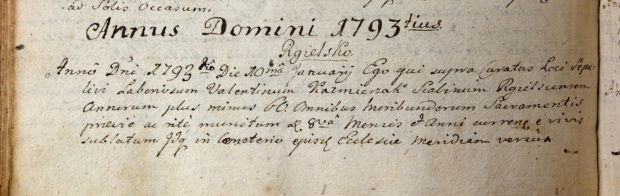 ad Solis Occasum.
Annus Domini 1793tius.
Rgielsko.
Anno Dni 1793tio Die 10ma Januarij Ego qui supra Curatus Loci Sepe-
livi Laboriosum Valentinum Kazmierczak Scabinum Rgielscensem
Annorum plus minus 60. Omnibus Moribundorum Sacramentis
previe ac rite munitum ac 8va Mensis et Anni currens e vivis
sublatum Idq in Cemeterio episq Ecclesie Meridiem versus